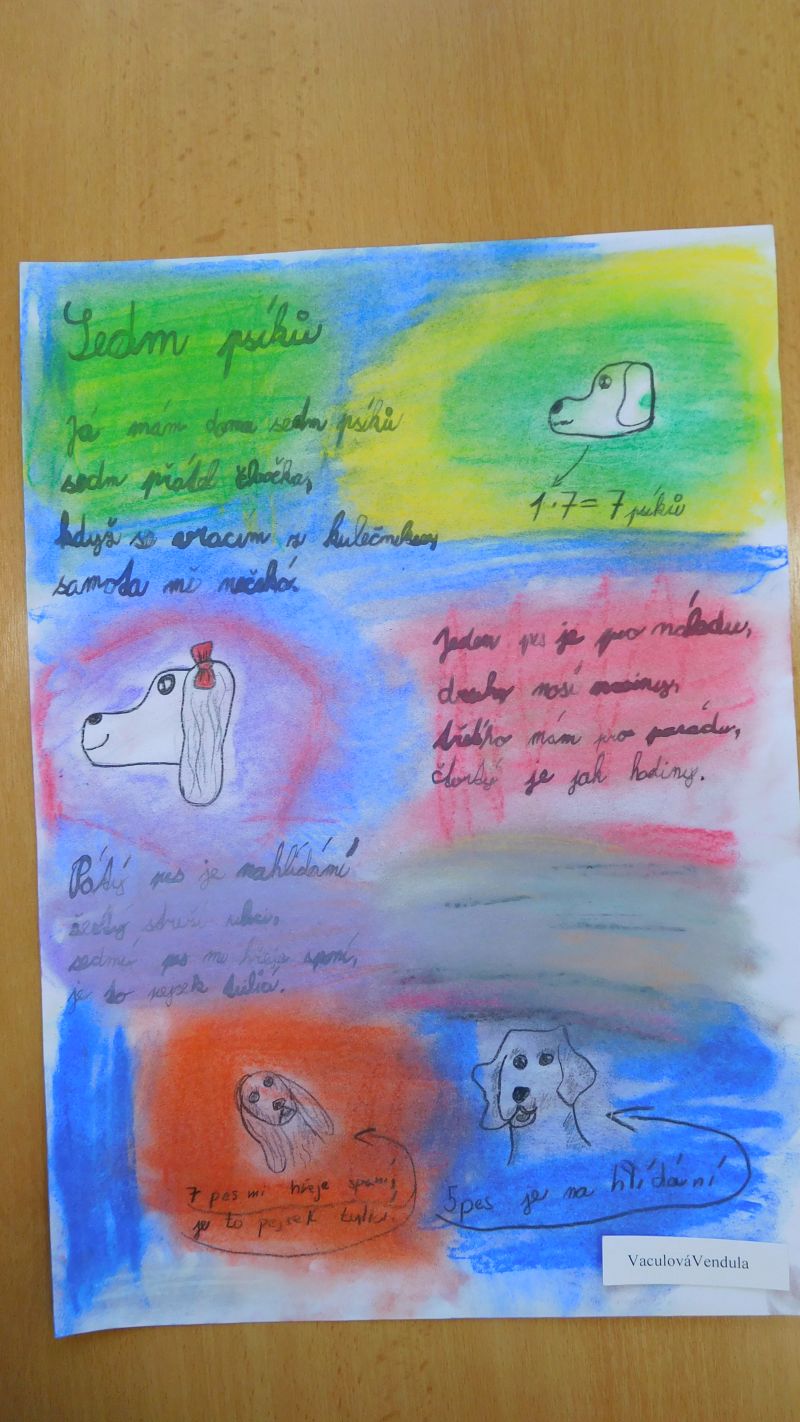 Sedm psíků
Já mám doma sedm psíků
sedm přátel človička,
když se vracím z kulečníku,
samota mě nečeká.
1·7=7 psíků
Jeden pes je pro náladu,
druhý nosí noviny,
třetího mám pro parádu,
čtvrtý je jak hodiny.
Pátý pes je nahlídání
šestý střeží ulici,
sedmý pes mi hřeje spaní,
je to pejsek tulicí.
7 pes mi hřeje spaní,
je to pejsek tulící.
5pes je na hlídání
VaculováVendula